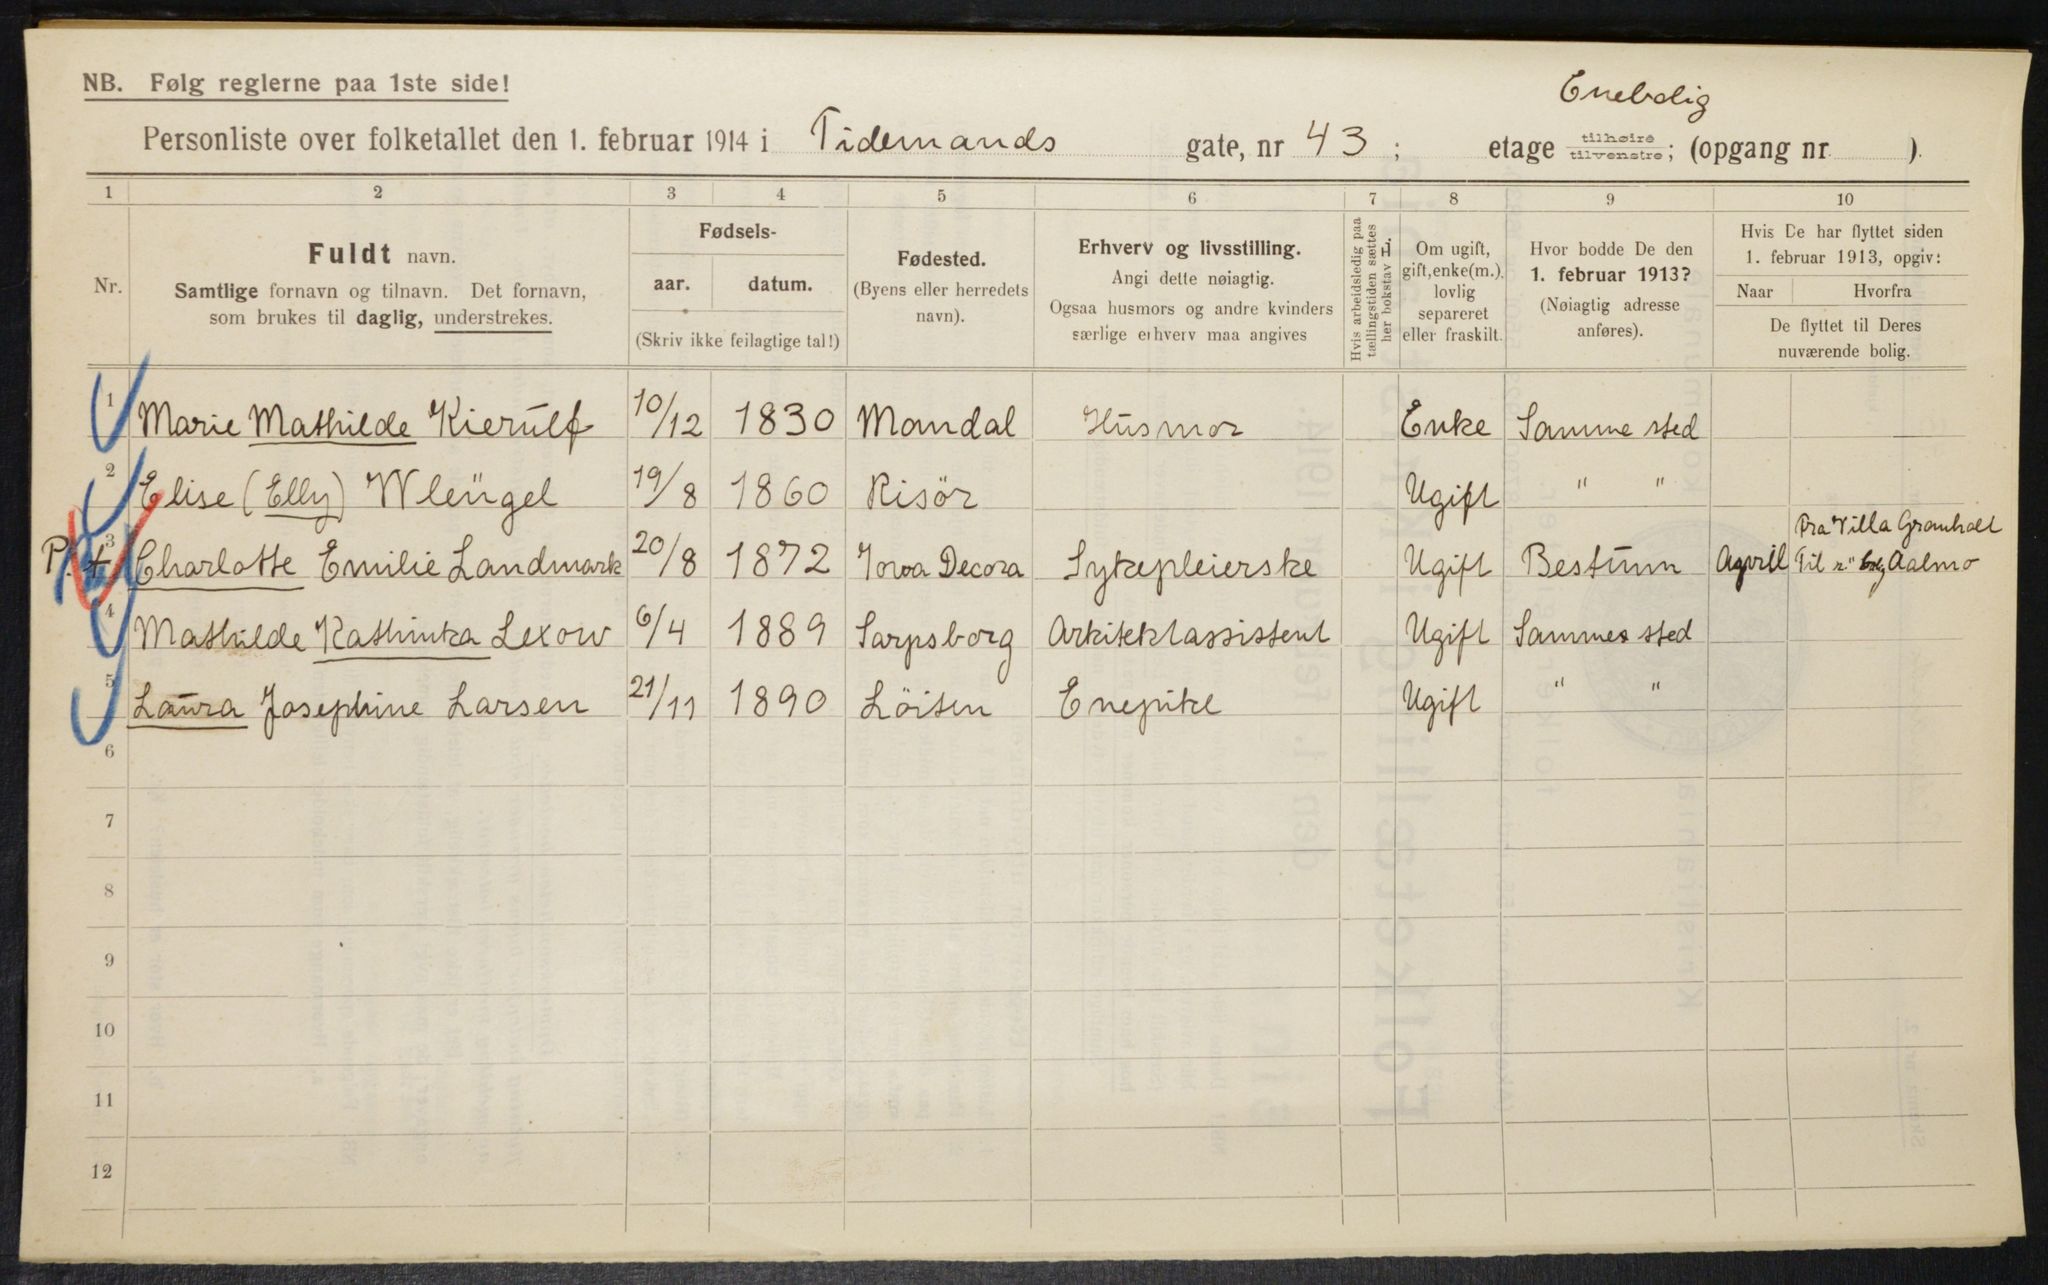 NB. Følg reglerne paa 1ste side!
Enebolig
Personliste over folketallet den 1. februar 1914 i Tidemands gate, nr 43; etage tilhøire tilvenstre; (opgang nr ).
1 2 3 4 5 6 7 8 9 10
Nr.
Fuldt navn.
Samtlige fornavn og tilnavn. Det fornavn,
som brukes til daglig, understrekes.
Fødsels-
aar. datum.
(Skriv ikke feilagtige tal!)
Fødested.
(Byens eller herredets
navn).
Erhverv og livsstilling.
Angi dette nøiagtig.
Ogsaa husmors og andre kvinders
særlige erhverv maa angives
Hvis arbeidsledig paa
tællingstiden sættes
her bokstav L.
Om ugift,
gift, enke(m.).
lovlig
separeret
eller fraskilt.
Hvor bodde De den
1. februar 1913?
(Nøiagtig adresse
anføres).
Hvis De har flyttet siden
1. februar 1913, opgiv:
Naar Hvorfra
De flyttet til Deres
nuværende bolig.
1 Marie Mathilde Kierulf 10/12 1830 Mandal Husmor Enke Samme sted
2 Elise (Elly) Wleügel 19/8 1860 Risör Ugift " "
Fra Villa Granholt
P. + 3 Charlotte Emilie Landmark 20/8 1872 Iowa Decora Sykepleierske Ugift Bestum April Til Aalmo
4 Mathilde Kathinka Lexow 6/4 1889 Sarpsborg Arkitektassistent Ugift Samme sted
5 Laura Josephine Larsen 21/11 1890 Löiten Enepike Ugift " "
6
7
8
9
10
11
12